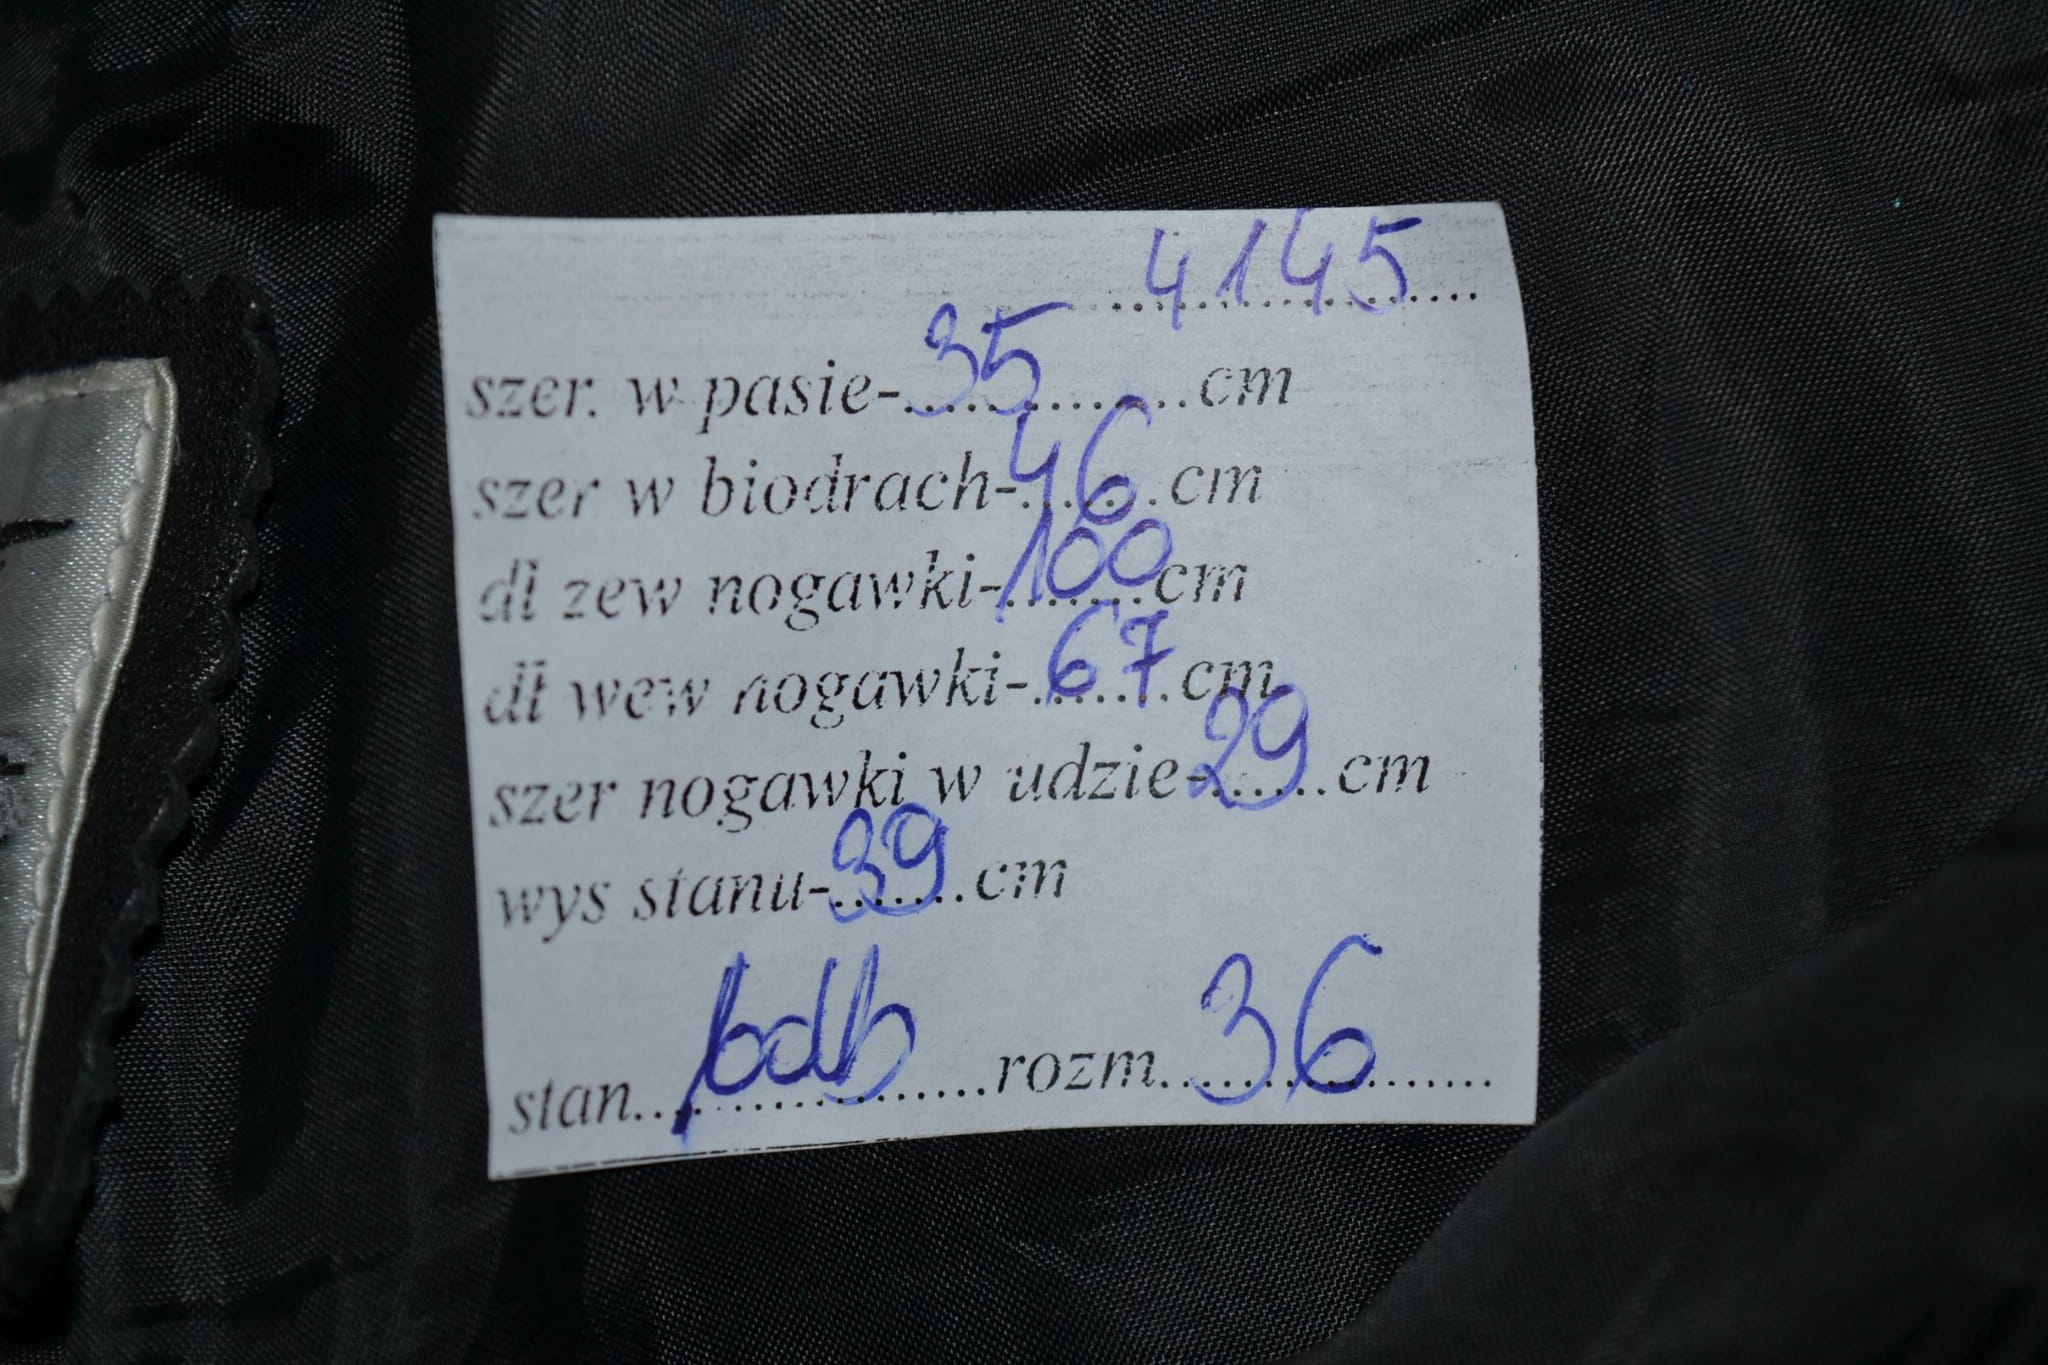 4145
szer. w pasie-35cm
szer w biodrach-46cm
dł zew nogawki-100cm
dł wew nogawki-67cm
szer nogawki w udzie-29cm
wys stanu-39cm
stan bdb rozm 36